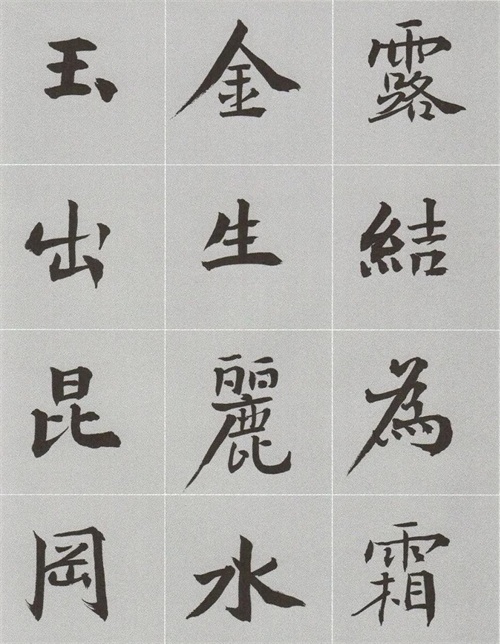 露結為霜
金生麗水
玉出昆岡